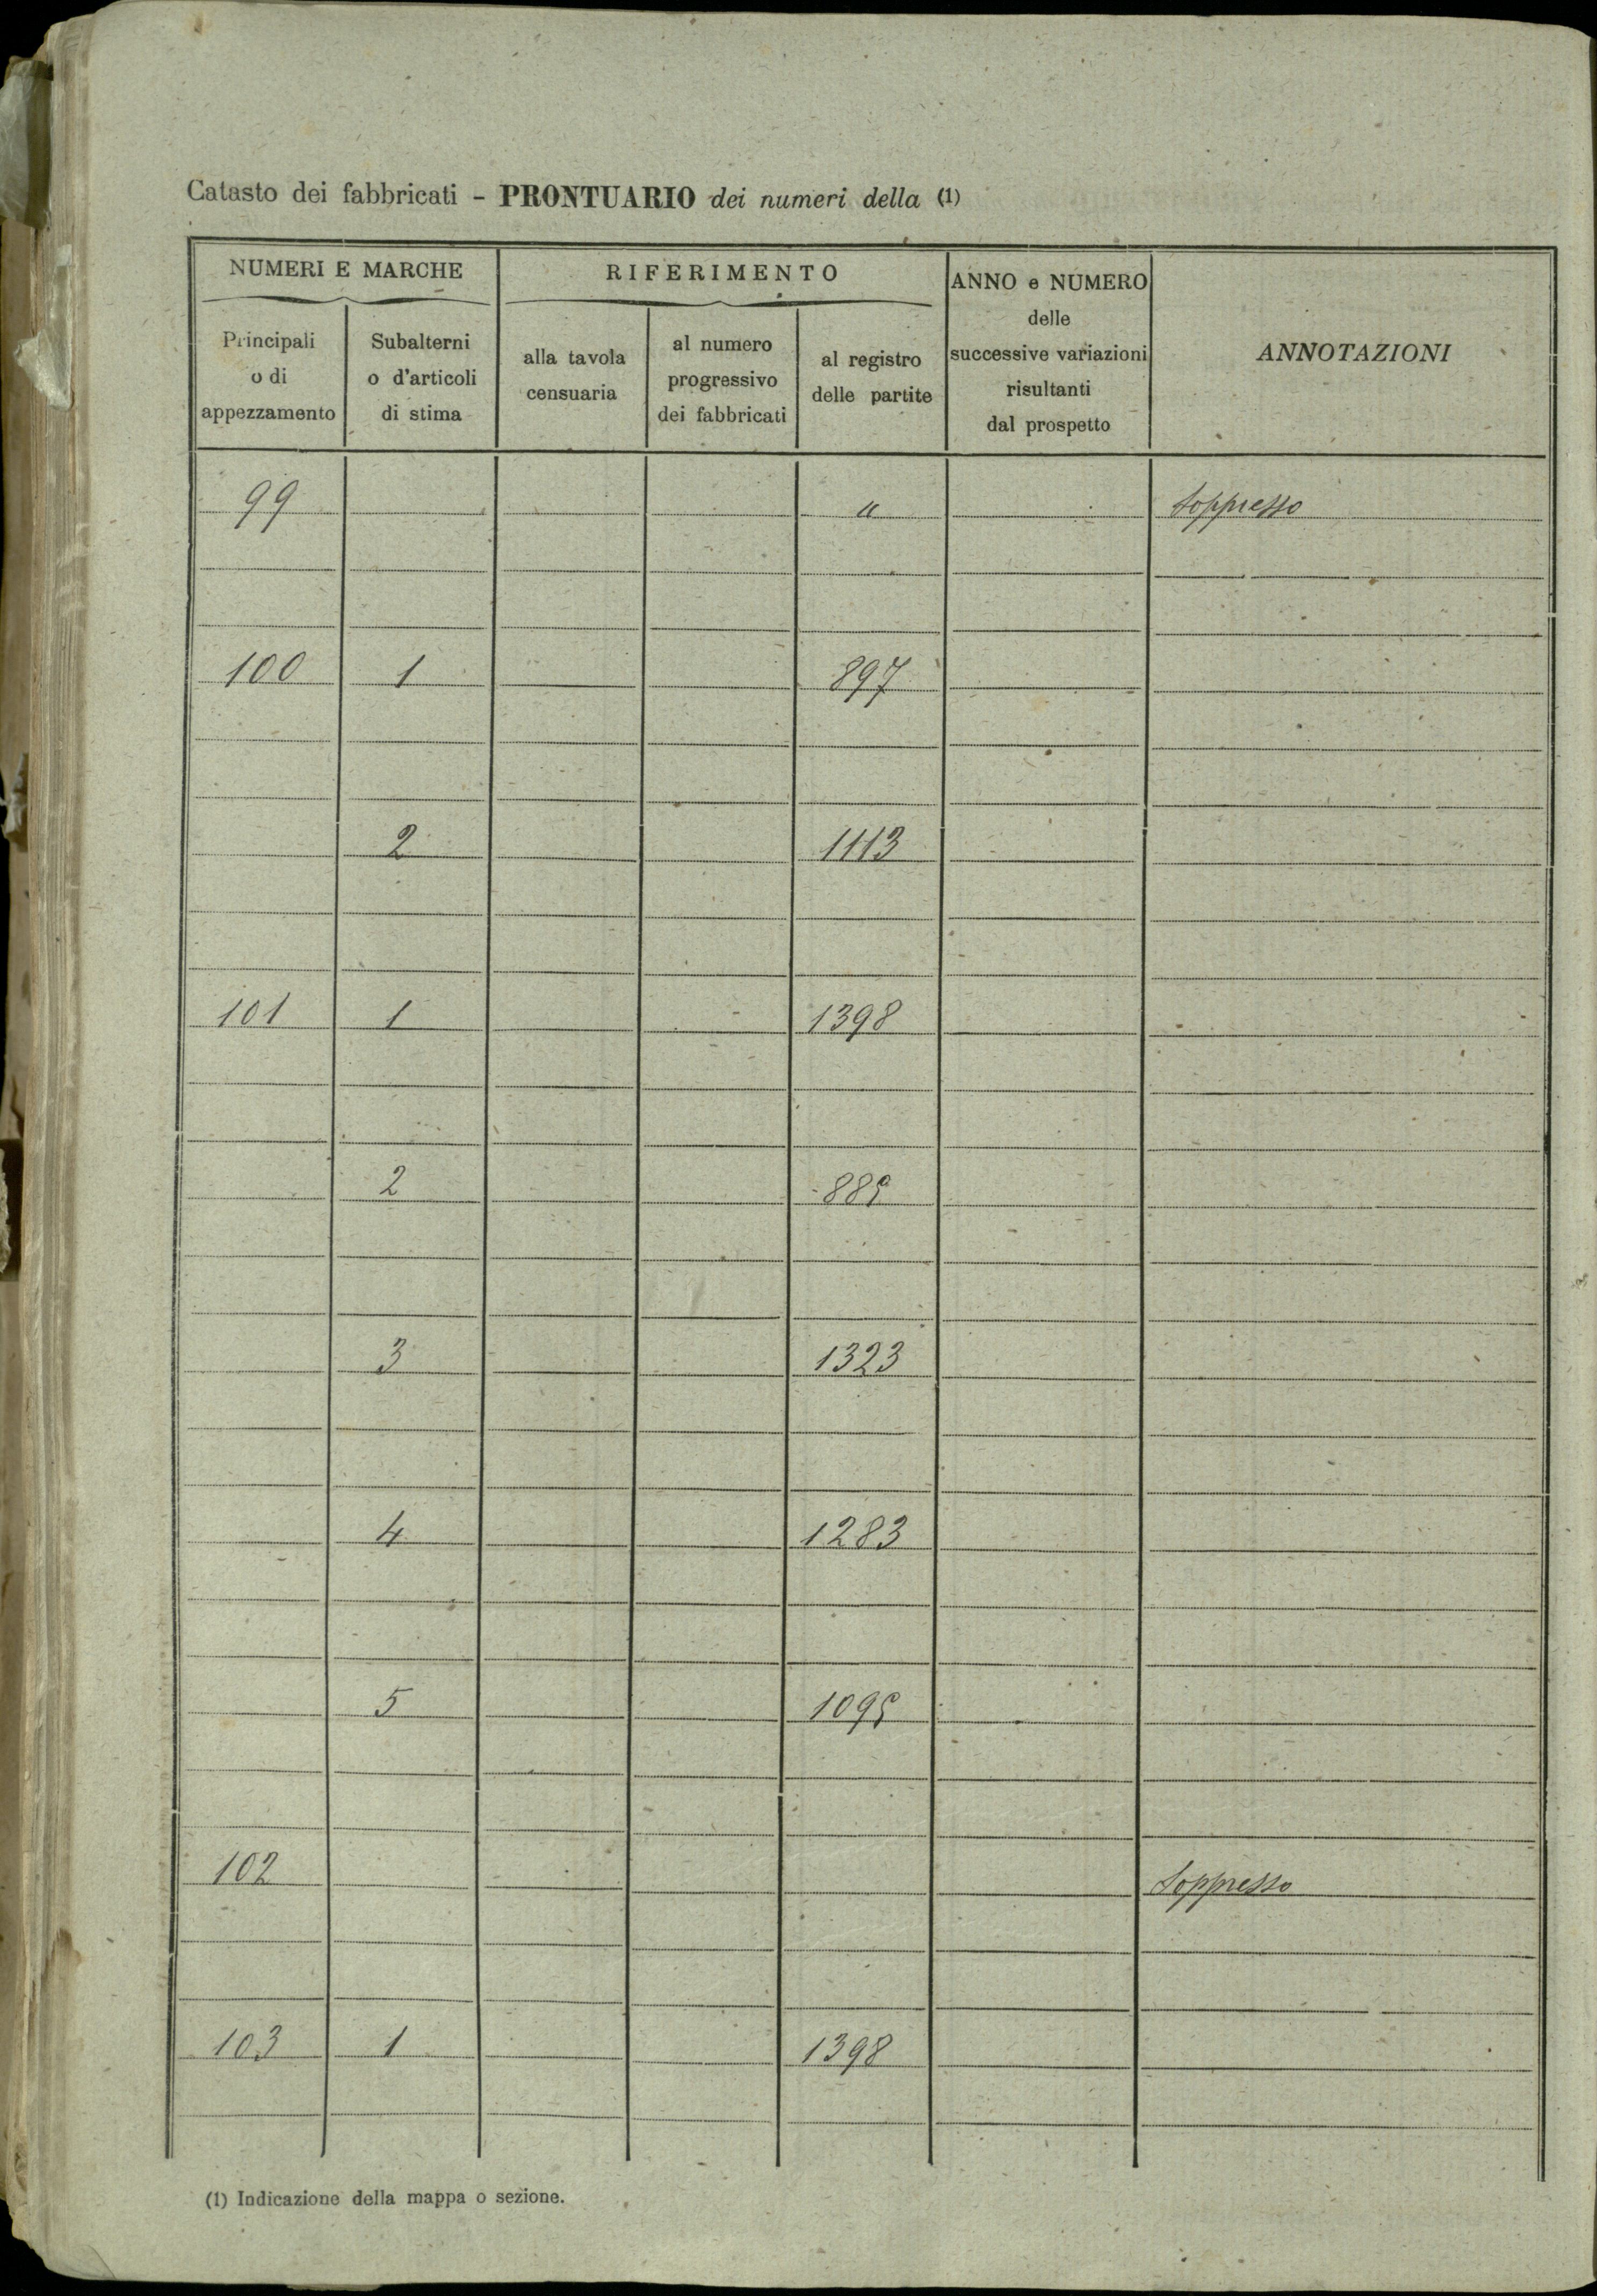 Catasto dei fabbricati - PRONTUARIO dei numeri della (1)
NUMERI E MARCHE
RIFERIMENTO
ANNO e NUMERO
delle
successive variazioni
risultanti
dal prospetto
ANNOTAZIONI
Principali
o di
appezzamento
Subalterni
o d'articoli
di stima
alla tavola
censuaria
al numero
progressivo
dei fabbricati
al registro
delle partite
99 " soppresso
100 1 897
2 1113
101 1 1398
2 885
3 1323
4 1283
5 1095
102 soppresso
103 1 1398
(1) Indicazione della mappa o sezione.